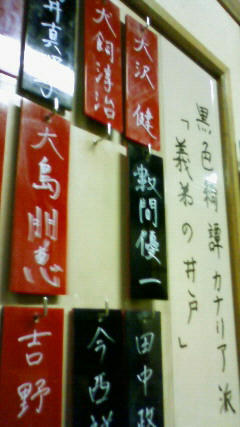 黒色綺譚カナリア派
「義弟の井戸」
大沢健
数間優一
田中
犬飼淳治
今西
井真
大島朋恵
吉野